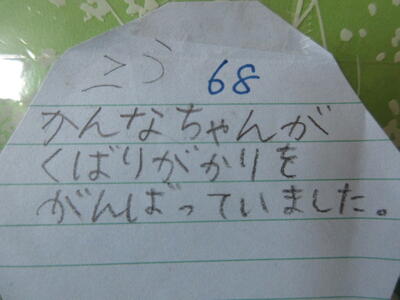 こう
68
かんなちゃんが
くばりがかりを
がんばっていました。